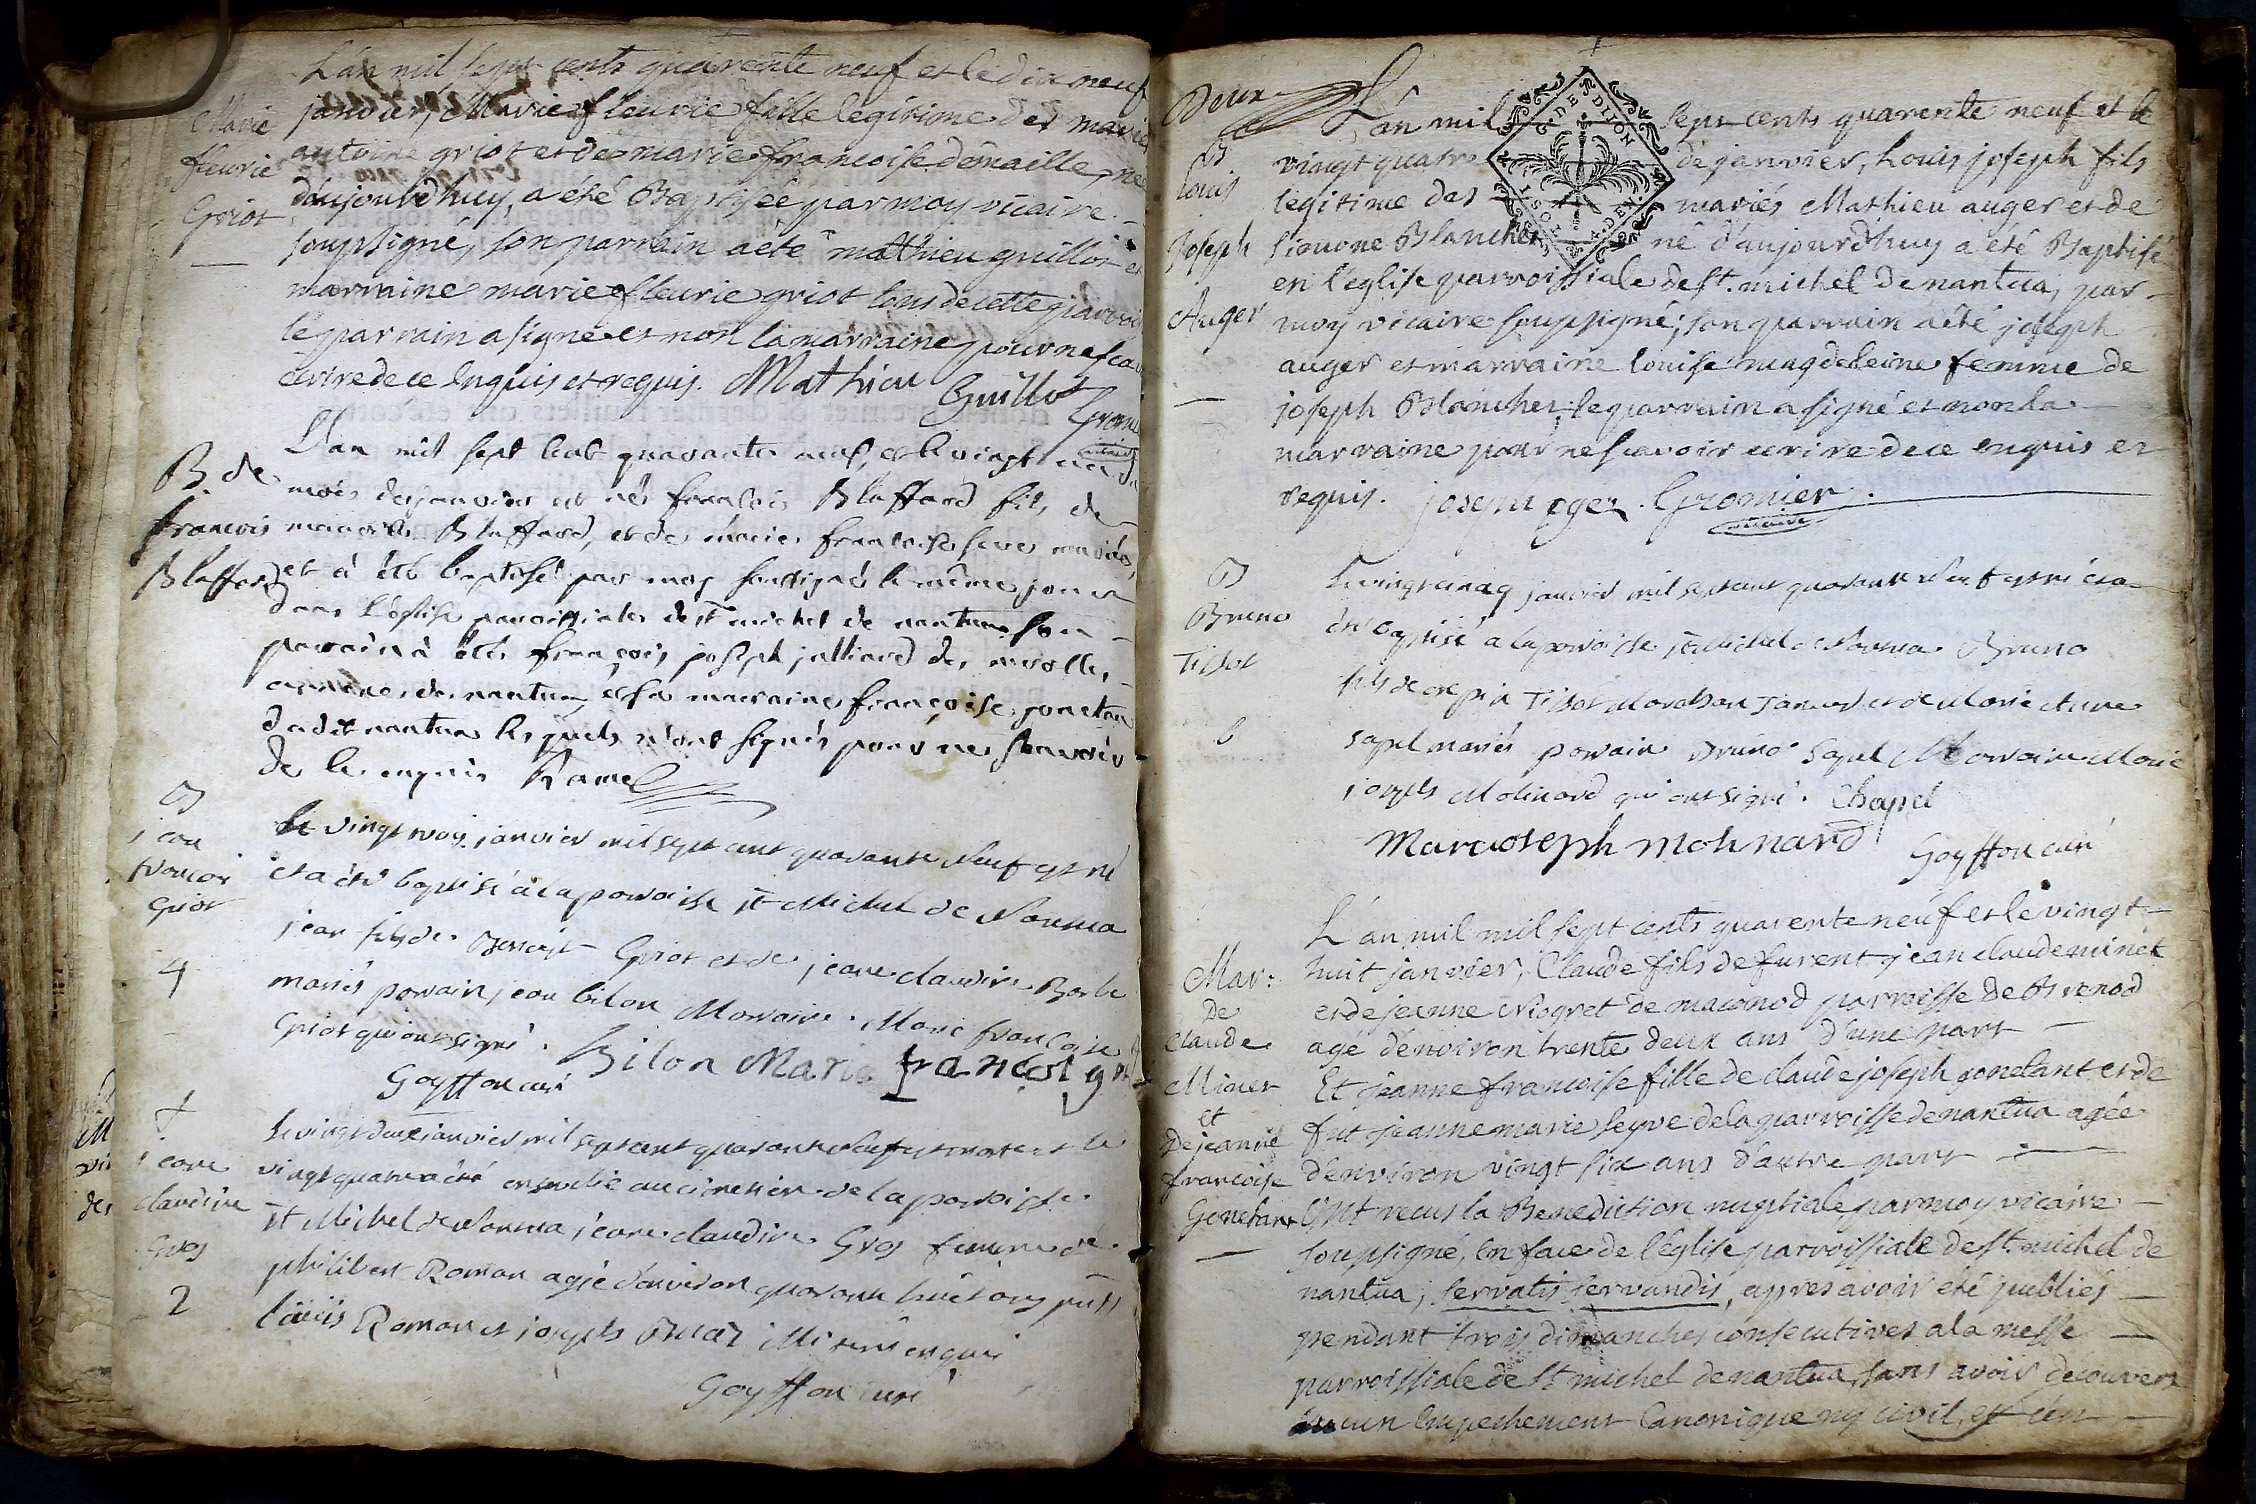 L'an mil sept cents quarente neuf et le dix neuf
Marie janvier, Marie fleurie fille legitime des mariés
fleurie antoine griot et de marie francoise demaille, née
Griot d'aujourdhuy, a été Baptisée par moy vicaire
soupsigné, son parrain a été mathieu guillot et
marraine marie fleurie griot tous de cette parroisse
le parrain a signé et non la marraine pour ne scavoir
ecrire de ce enquis et requis. Mathieu Guillot
Gromier
vicaire
L'an mil sept cent quarante neuf, et le vingt un du
B. de mois de janvier est né francois Blaffard fils de
francois Blaffard, et de marie francoise mariés,
Blaffard et à été baptisé par moy soussigné le même jour
dans l'église paroissiale de st michel de nantua son
parrain à été françois joseph julliard de
de nantua et sa marraine françoise gonetan
dudit nantua lesquels n'ont signés pour ne scavoir
de ce enquis Ramel
B
jean Le vingt trois janvier mil sept cent quarante neuf est né
francois et a été baptisé a la paroisse st Michel de Nantua
Griot jean fils de Benoist Griot et de jeane claudine Barbe
4 mariés parrain jean bilon Marraine Marie françoise
Griot qui ont signé. Bilon Marie françois
Goyffon curé
†
jeane Le vingt deux janvier mil sept cent quarante neuf est morte et le
claudine vingt quatre a été ensevelie au cimetiere de la paroisse
Gros st Michel de Nantua jeane claudine Gros femme de
philibert Roman agée d'environ quarante huit ans
2 louis Roman et joseph enquis
Goyffon curé
Deux
L'an mil sept cents quarente neuf et le
B vingt quatre de janvier, Louis joseph fils
Louis legitime des mariés Mathieu auger et de
Joseph Simonne Blanchet né d'aujourdhuy a été Baptisé
en l'église parroissiale de St. michel de nantua, par
Auger moy vicaire soupsigné; son parrain a été joseph
auger et marraine louise magdeleine femme de
joseph Blanchet le parrain a signé et non la
marraine pour ne scavoir ecrire de ce enquis et
requis. Joseph oger Gromier
vicaire
G. DE DIJON
B
Bruno Le vingt cinq janvier mil sept cent quarante neuf est né et a
Tissot été baptisé a la paroisse st Michel Nantua Bruno
fils de crepin Tissot Marchan et de Marie
3 sapel mariés parrain Bruno Sapel Marraine Marie
joseph Molinard qui ont signé. Chapel
Marie joseph molinard
Goyffon curé
L'an mil mil sept cents quarente neuf et le vingt
Mar: huit janvier, Claude fils de furent jean claude minet
De et de jeanne de maconod parroisse de Brenod
Claude agé d'environ trente deux ans d'une part
Minet Et jeanne francoise fille de claude joseph gonetant et de
et fut jeanne marie seyve de la parroisse de nantua agée
De jeanne d'environ vingt six ans d'autre part
francoise
Gonetant Ont recus la Benediction nuptiale par moy vicaire
soupsigné, en face de l'église parroissiale de St. michel de
nantua, servatis servandis, apres avoir été publiés
pendant trois dimanches consecutives a la messe
parroissiale de St michel de nantua, sans avoir decouvert
aucun Empechement Canonique ny civil, et